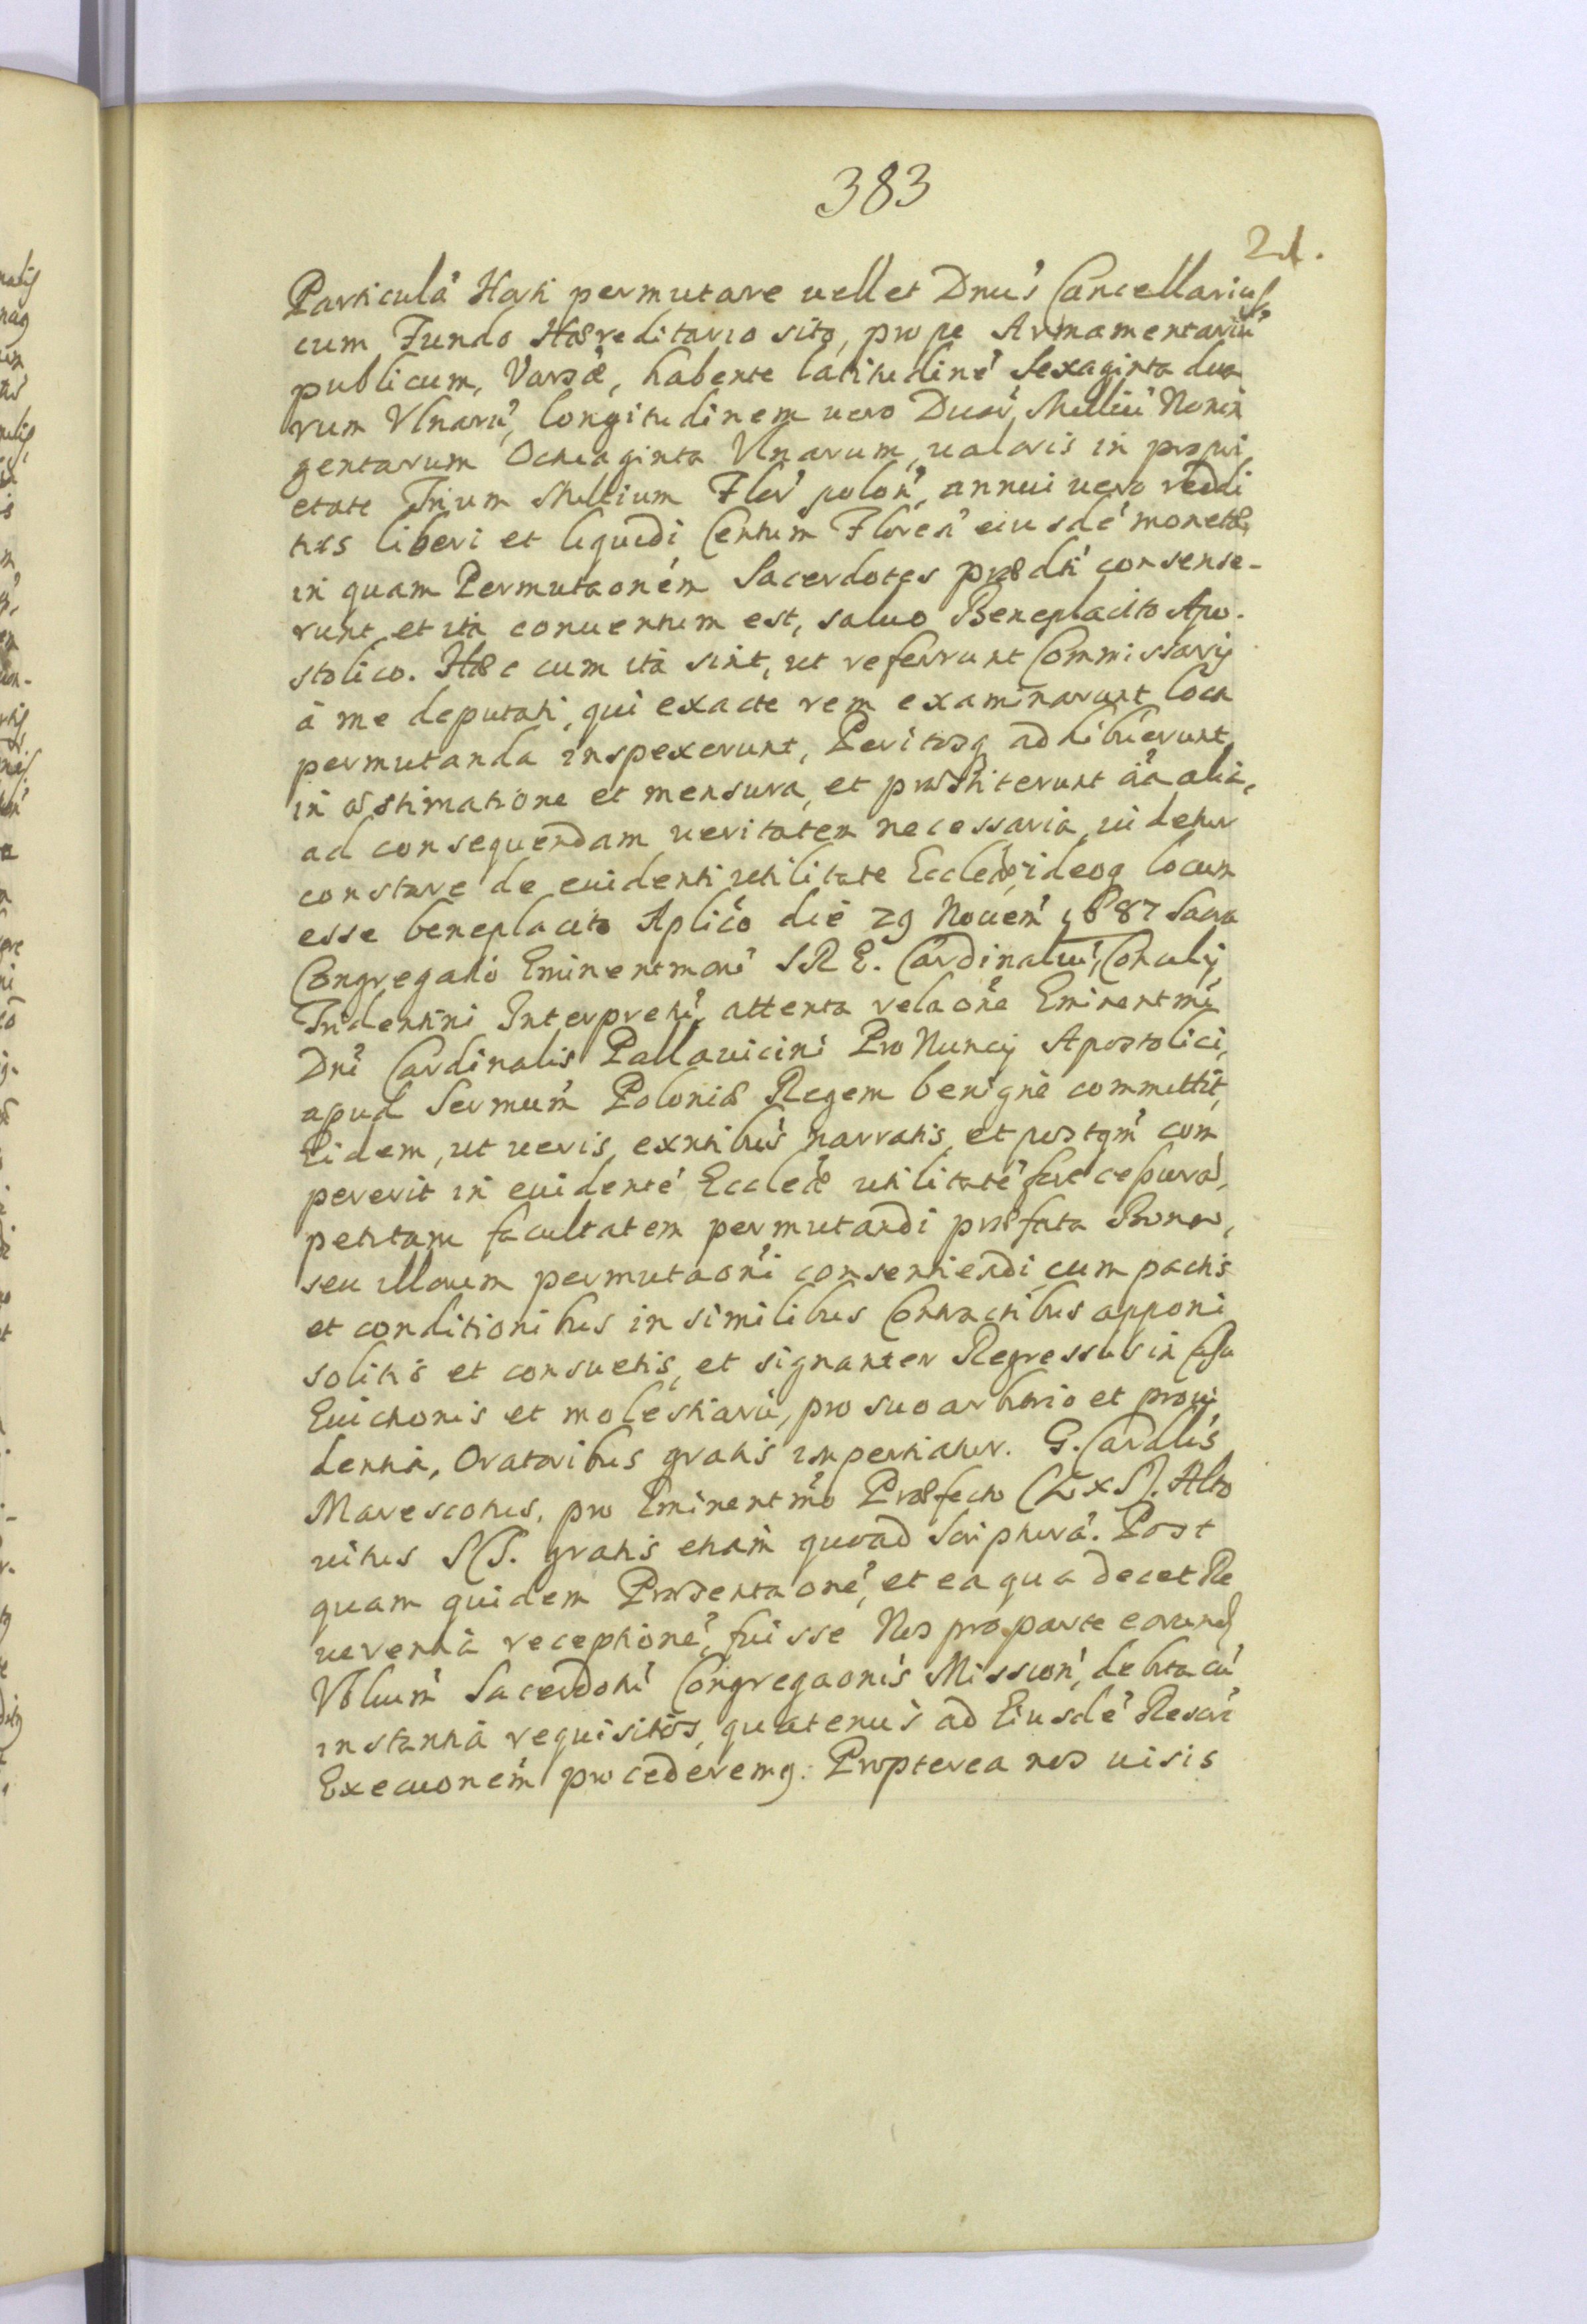 383
21.
Particulã Horti permutare uellet Dnus Cancellarius
cum Fundo Hæreditario sito, prope Armamentariũ
publicum, Varsæ, habente latitudinẽ Sexaginta dua
rum Vlnarũ, longitudinem uero Duar̃, Milliũ Nonin
gentarum Octuaginta Vlnarum, ualoris in propri,
etate Trium Millium Flor̃ polon̄, annui uero reddi
tus liberi et liquidi Centum Floren̄ eiusdẽ monetæ,
in quam Permutaonẽm Sacerdotes prædti consense-
runt, et ita conuentum est, saluo Beneplacito Apo-
stolico. Hæc cum ità sint, ut referrunt Commissarij
à me deputati, qui exacte rem examinarunt loca
permutanda inspexerunt, Peritosq adhibuerunt
in æstimatione et mensura, et præstiterunt oĩa alia,
ad consequendam ueritatem necessaria, uidetur
constare de euidenti utilitate Ecclæ, ideoq locum
esse beneplacito Aplico die 29 Nouem̃ 1687 Sacra
Congregatio Eminentmorũ S R E. Cardinaliũ, Concilij
Tridentini Interpretũ, attenta relaone Eminentmi
Dni Cardinalis Pallauicini Pro Nuncij Apostolici,
apud Sermum Poloniæ Regem benignè committit,
Eidem, ut ueris, exntibus narratis, et postqm̃ com
pererit in euidentẽ Ecclæ utilitatẽ fore cessurã,
petitam facultatem permutandi præfata Bona,
seu illorum permutaoni consentiendi, cum pactis
et conditionibus in similibus Contractibus apponi
solitis et consuetis, et signanter Regressus in Casu
Euictionis et molestiarũ, pro suo arbitrio et proui
dentia, Oratoribus gratis impertiatur. G. Cardlis
Marescotus, pro Eminentmo Præfecto (L x S). Alto
uitus S C S. gratis etiam quoad Scripturã. Post
quam quidem Præsentaonẽ, et ea qua decet Re
uerentia receptionẽ, fuisse Nos pro parte eorund
Vblium Sacerdotũ Congregaonis Mission̄, debita cũ
instantia requisitos, quatenus ad Eiusdẽ Rescr̃
Execuonẽm procederemq. Propterea nos uisis